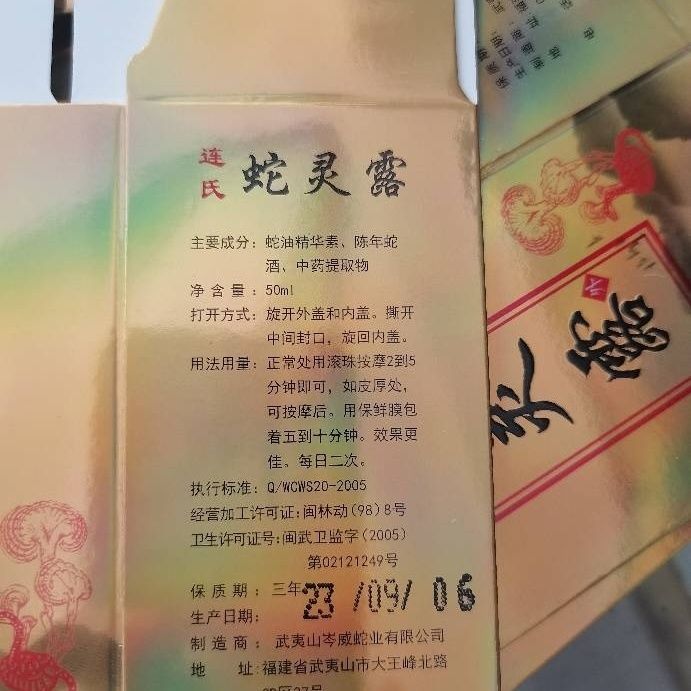 连氏
蛇灵露
主要成分：蛇油精华素、陈年蛇
酒、中药提取物
净含量：50ml
打开方式：旋开外盖和内盖。撕开
中间封口，旋回内盖。
用法用量：正常处用滚珠按摩2到5
分钟即可，如皮厚处，
可按摩后。用保鲜膜包
着五到十分钟。效果更
佳。每日二次。
执行标准：Q/WCWS20-2005
经营加工许可证：闽林动(98)8号
卫生许可证号：闽武卫监字(2005)
第02121249号
保质期：三年
生产日期：23/09/06
制造商：武夷山岑威蛇业有限公司
地 址：福建省武夷山市大王峰北路
灵露
保质期：
生产日期：
制造商：武
地 址：福